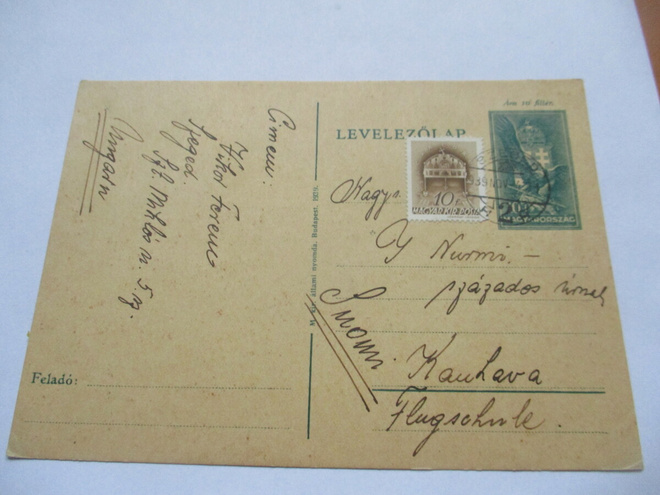 Ára 20 fillér.
LEVELEZŐLAP
10 f
MAGYAR KIR. POSTA
939
20
MAGYARORSZÁG
Nagys.
Y Nurmi, –
százados úrnak
Kauhava
Flugschule.
Suomi.
Címem:
Vitor Ferenc
Szeged
Szt. Miklós u. 5 sz.
Ungarn
M. kir. állami nyomda, Budapest.
Feladó: